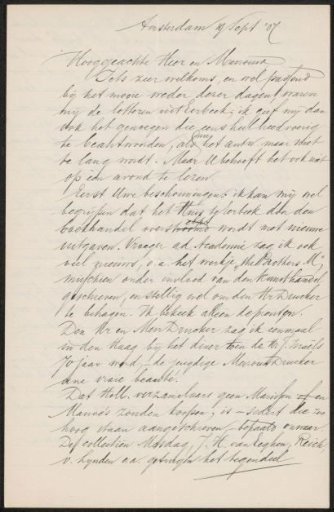 Amsterdam 19 Sept '07
Hooggeachte Heer en Mevrouw
Iets zeer welkoms, en wel
bij het mooie weder dezer dagen waren
mij de letteren uit Eerbeek; ik geef mij dan
ook het genoegen die eens heel
te beantwoorden, als het antw. maar niet
te lang wordt. Maar U behoeft het ook niet
op één avond te lezen.
Eerst Uwe beschouwingen: ik kan mij wel
begrijpen dat het Huis te Eerbeek door den
boekhandel wordt met nieuwe
uitgaven. Vroeger ad Academie zag ik ook
veel nieuws, o.a. het werkje, the Brothers M,
misschien onder invloed van den Kunsthandel
geschreven, en stellig wel om den Hr Drucker
te behagen. Ik bekeek alleen de prenten.
Den Hr en Mevr Drucker zag ik eenmaal
in den Haag bij het diner toen de Hr J. Israëls
70 jaar werd, de jeugdige Mevrouw Drucker
une vraie beauté.
Dat Holl. verzamelaars geen Marissen of en
Mauve's zouden koopen, is sedert die zoo
hoog staan aangeschreven,
Def collectien Mesdag, J. H. van Eeghen,
v. Lynden o.a. getuigen het tegendeel